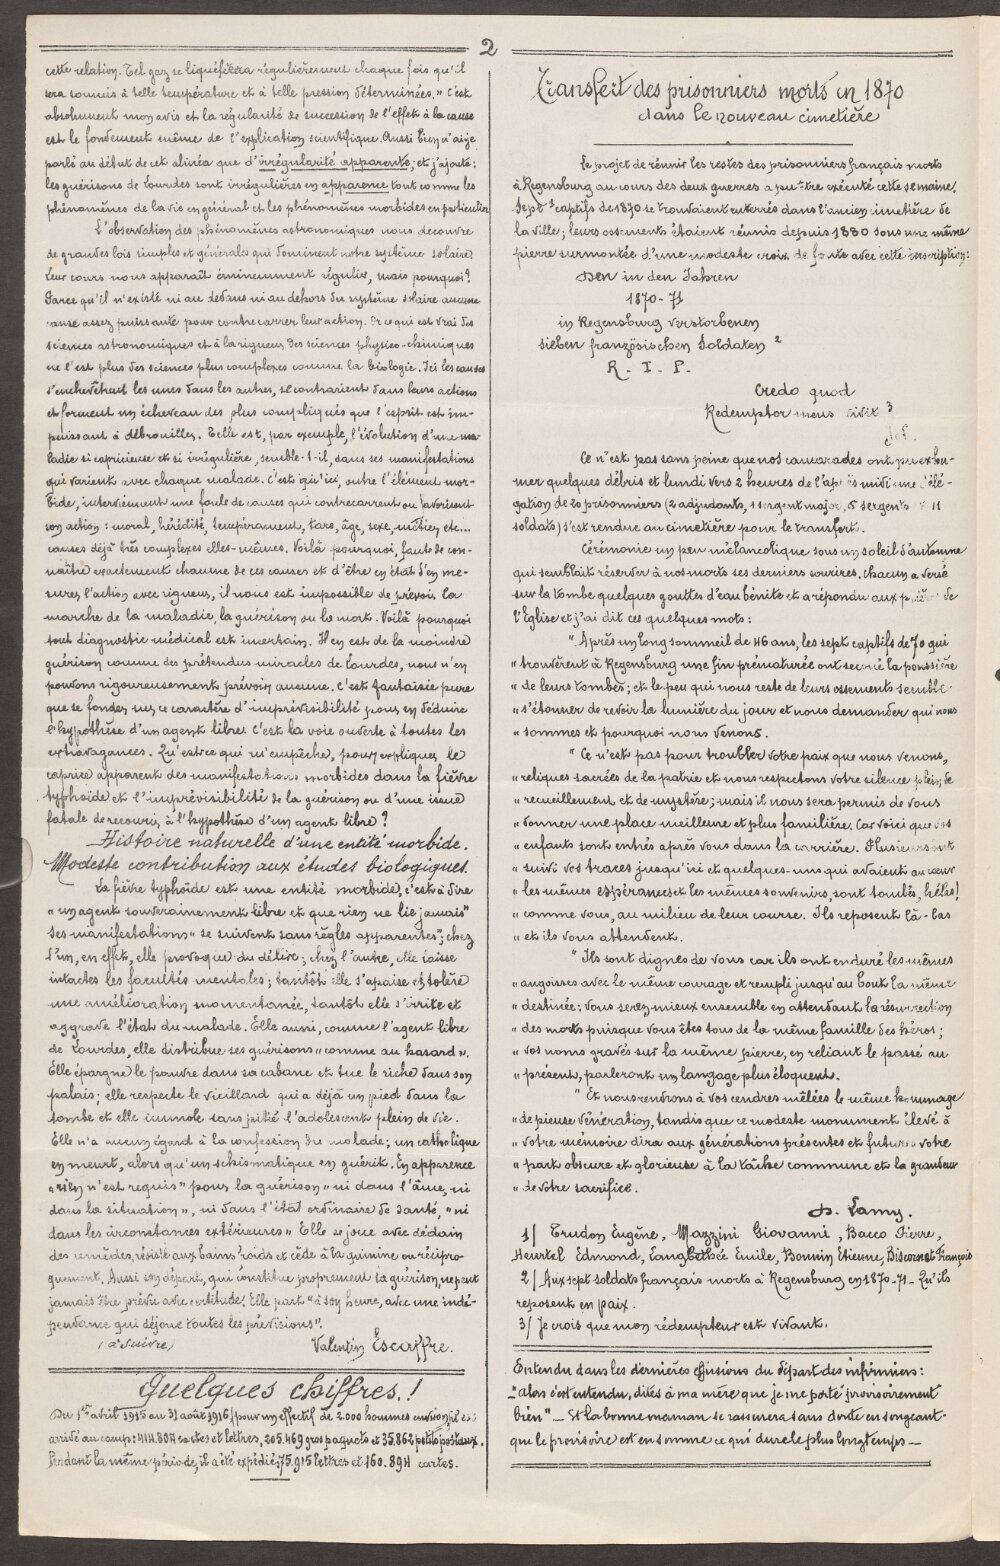 2
cette relation. Tel gaz se liquéfiera régulièrement chaque fois qu'il
sera soumis à telle température et à telle pression déterminées." C'est
absolument mon avis et la régularité de succession de l'effet à la cause
est le fondement même de l'explication scientifique. Aussi bien n'ai-je
parlé au début de cet alinéa que d'irrégularité apparente, et j'ajoute:
les guérisons de Lourdes sont irrégulières en apparence tout comme les
phénomènes de la vie en général et les phénomènes morbides en particulier.
L'observation des phénomènes astronomiques nous découvre
de grandes lois simples et générales qui dominent notre système solaire.
Leur cours nous apparaît éminemment régulier, mais pourquoi?
Parce qu'il n'existe ni au dedans ni au dehors du système solaire aucune
cause assez puissante pour contrecarrer leur action. Or ce qui est vrai des
sciences astronomiques et à la rigueur des sciences physico-chimiques
ne l'est plus des sciences plus complexes comme la biologie. Ici les causes
s'enchevêtrent les unes dans les autres, se contrarient dans leurs actions
et forment un écheveau des plus compliqués que l'esprit est im-
puissant à débrouiller. Telle est, par exemple, l'évolution d'une ma-
ladie si capricieuse et si irrégulière, semble-t-il, dans ses manifestations
qui varient avec chaque malade. C'est qu'ici, outre l'élément mor-
bide, interviennent une foule de causes qui contrecarrent ou favorisent
son action: moral, hérédité, tempérament, tare, âge, sexe, métier, etc...
causes déjà très complexes elles-mêmes. Voilà pourquoi, faute de con-
naître exactement chacune de ces causes et d'être en état d'en me-
surer l'action avec rigueur, il nous est impossible de prévoir la
marche de la maladie, la guérison ou la mort. Voilà pourquoi
tout diagnostic médical est incertain. Il en est de la moindre
guérison comme des prétendus miracles de Lourdes, nous n'en
pouvons rigoureusement prévoir aucune. C'est fantaisie pure
que se fonder sur ce caractère d'imprévisibilité pour en déduire
l'hypothèse d'un agent libre. C'est la voie ouverte à toutes les
extravagances. Qu'est-ce qui m'empêche, pour expliquer le
caprice apparent des manifestations morbides dans la fièvre
typhoïde et l'imprévisibilité de la guérison ou d'une issue
fatale de recourir à l'hypothèse d'un agent libre?
Histoire naturelle d'une entité morbide.
Modeste contribution aux études biologiques.
La fièvre typhoïde est une entité morbide, c'est à dire
"un agent souverainement libre et que rien ne lie jamais"
Ses manifestations "se suivent sans règles apparentes"; chez
l'un, en effet, elle provoque du délire; chez l'autre, elle laisse
intactes les facultés mentales; tantôt elle s'apaise et tolère
une amélioration momentanée, tantôt elle s'irrite et
aggrave l'état du malade. Elle aussi, comme l'agent libre
de Lourdes, elle distribue ses guérisons "comme au hasard".
Elle épargne le pauvre dans sa cabane et tue le riche dans son
palais; elle respecte le vieillard qui a déjà un pied dans la
tombe et elle immole sans pitié l'adolescent plein de vie.
Elle n'a aucun égard à la confession du malade; un catholique
en meurt, alors qu'un schismatique en guérit. En apparence
"rien n'est requis" pour la guérison "ni dans l'âme, ni
dans la situation", ni dans l'état ordinaire de santé, "ni
dans les circonstances extérieures" Elle se joue avec dédain
des remèdes, résiste aux bains froids et cède à la quinine ou récipro-
quement. Aussi son départ, qui constitue proprement la guérison, ne peut
jamais être prévu avec certitude. Elle part "à son heure, avec une indé-
pendance qui déjoue toutes les prévisions".
(à suivre) Valentin Escaffre.
Quelques chiffres.!
Du 1er avril 1915 au 31 août 1916 (pour un effectif de 2.000 hommes environ) il est
arrivé au camp: 414.807 cartes et lettres, 205.469 gros paquets et 35.862 petits postaux.
Pendant la même période, il a été expédié: 75.915 lettres et 160.894 cartes.
Transfert des prisonniers morts en 1870
dans le nouveau cimetière
Le projet de réunir les restes des prisonniers français morts
à Regensburg au cours des deux guerres a pu être exécuté cette semaine.
Sept 1 captifs de 1870 se trouvaient enterrés dans l'ancien cimetière de
la ville; leurs ossements étaient réunis depuis 1880 sous une même
pierre surmontée d'une modeste croix de fonte avec cette inscription:
Den in den Jahren
1870-71
in Regensburg verstorbenen
sieben französischen Soldaten 2
R. I. P.
Credo quod
Redemptor meus vivit 3
Job.
Ce n'est pas sans peine que nos camarades ont pu exhu-
mer quelques débris et lundi vers 2 heures de l'après midi une délé-
gation de 20 prisonniers (2 adjudants, 1 sergent major, 6 sergents et 11
soldats) s'est rendue au cimetière pour le transfert.
Cérémonie un peu mélancolique sous un soleil d'automne
qui semblait réserver à nos morts ses derniers sourires. Chacun a versé
sur la tombe quelques gouttes d'eau bénite et a répondu aux prières de
l'Église et j'ai dit ces quelques mots:
" Après un long sommeil de 46 ans, les sept captifs de 70 qui
" trouvèrent à Regensburg une fin prématurée ont secoué la poussière
" de leurs tombes; et le peu qui nous reste de leurs ossements semble
" s'étonner de revoir la lumière du jour et nous demander qui nous
" sommes et pourquoi nous venons.
" Ce n'est pas pour troubler votre paix que nous venons,
" reliques sacrées de la patrie et nous respectons votre silence plein de
" recueillement et de mystère; mais il nous sera permis de vous
" donner une place meilleure et plus familière. Car voici que des
" enfants sont entrés après vous dans la carrière. Plusieurs ont
" suivi vos traces jusqu'ici et quelques-uns qui avaient au cœur
" les mêmes espérances et les mêmes souvenirs, sont tombés, hélas!
" comme vous, au milieu de leur course. Ils reposent là-bas
" et ils vous attendent.
" Ils sont dignes de vous car ils ont enduré les mêmes
" angoisses avec le même courage et rempli jusqu'au bout la même
" destinée: vous serez mieux ensemble en attendant la résurrection
" des morts puisque vous êtes tous de la même famille des héros;
" vos noms gravés sur la même pierre, en reliant le passé au
" présent, parleront un langage plus éloquent.
" Et nous rendrons à vos cendres mêlées le même hommage
" de pieuse vénération, tandis que ce modeste monument élevé à
" votre mémoire dira aux générations présentes et futures votre
" part obscure et glorieuse à la tâche commune et la grandeur
" de votre sacrifice.
D. Lamy.
1/ Trudon Eugène, Mazzini Giovanni, Bacco Pierre,
Heurtel Edmond, Langbethée Emile, Bonnin Etienne, Biscornet François
2/ Aux sept soldats français morts à Regensburg en 1870-71. Qu'ils
reposent en paix.
3/ Je crois que mon rédempteur est vivant.
Entendu dans les dernières effusions du départ des infirmiers:
"alors c'est entendu, dites à ma mère que je me porte provisoirement
bien" — Et la bonne maman se rassurera sans doute en songeant
que le provisoire est en somme ce qui dure le plus longtemps —